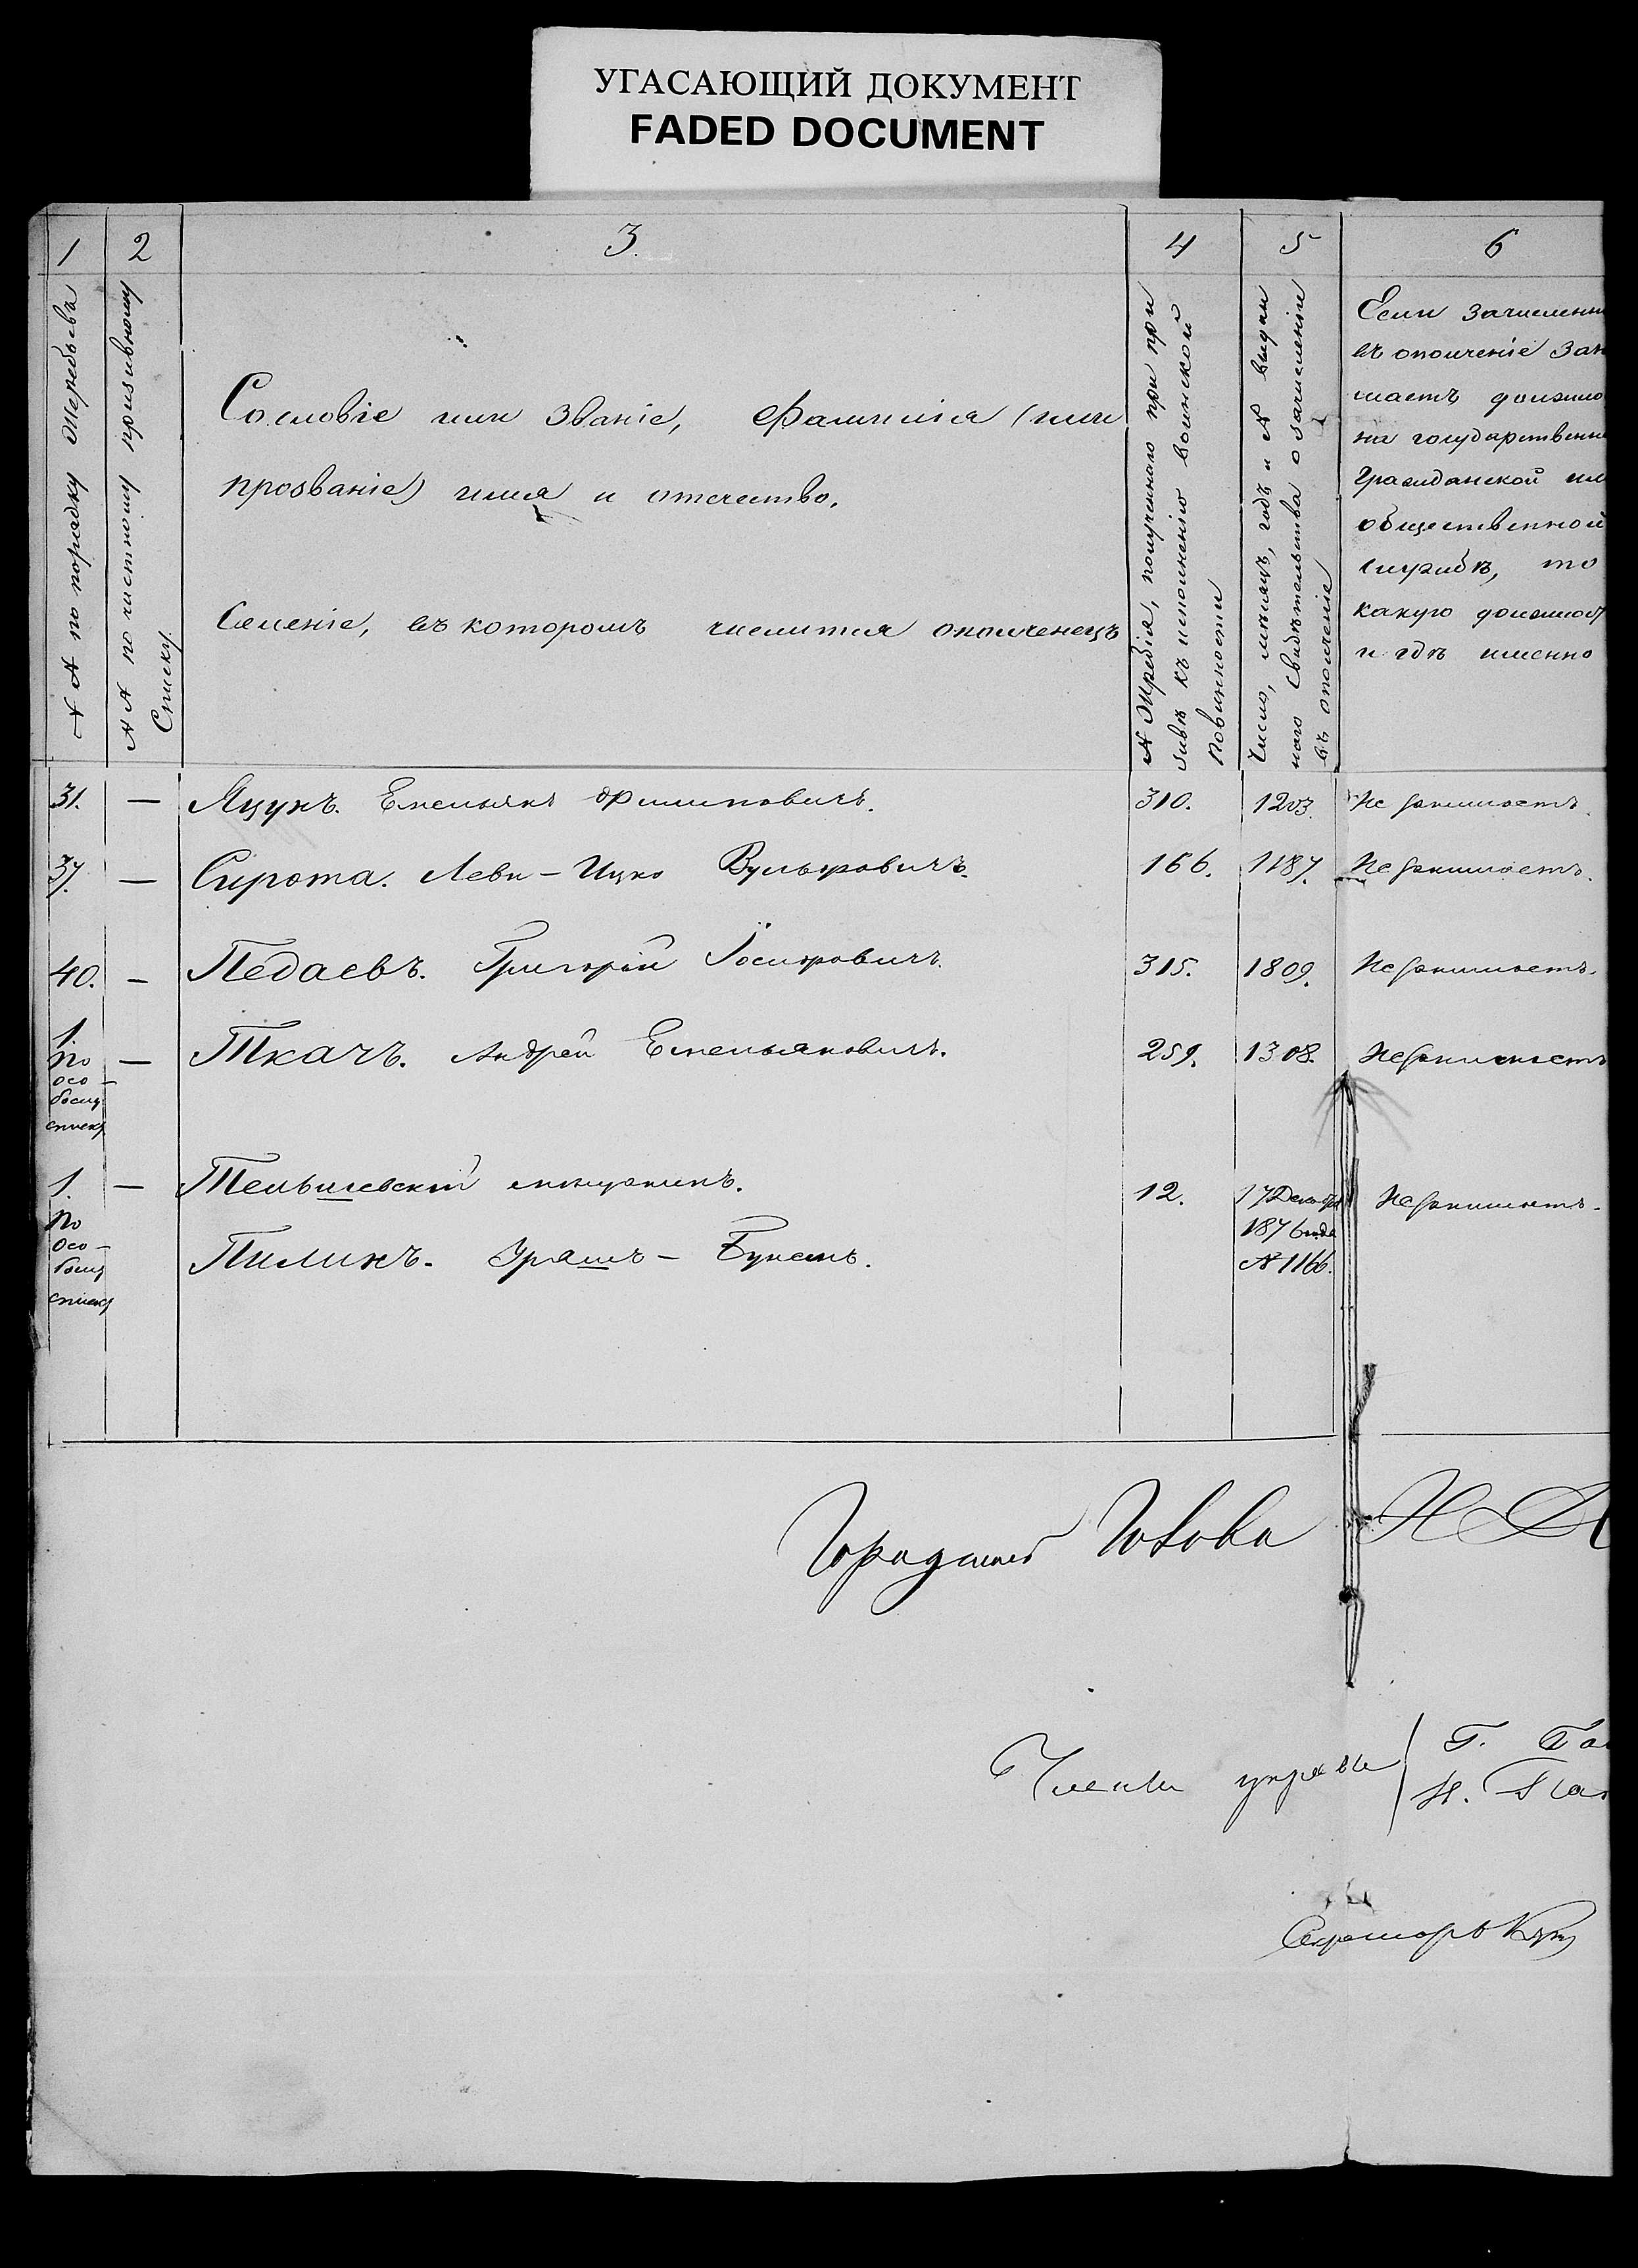 УГАСАЮЩИЙ ДОКУМЕНТ
FADED DOCUMENT
1 2 3. 4 5 6
№ № по порядку жеребьевъ
№ № по частному призывному
Списку.
Сословіе или званіе, фамилія (или
прозваніе) имя и отчество.
Семеніе, въ которомъ числится ополченецъ
№ жребія, полученнаго при при
зывѣ къ исполненію воинской
повинности
Число, мѣсяцъ, годъ и № выдан
наго свидѣтельства о зачисленіи
въ ополченіе
Если зачислен
въ ополченіе зан
маетъ должно
на государственн
Гражданской ил
общественной
службѣ, то
какую должност
и гдѣ именно
31. — Яцунъ. Емельянъ Филиповичъ. 310. 1203. Не занимаетъ.
37. — Сирота. Леви-Ицко Вульфовичъ. 166. 1187. Не занимаетъ.
40. — Педаевъ. Григорій Іосифовичъ. 315. 1809. Не занимаетъ.
1. — Ткачъ. Андрей Емельяновичъ. 259. 1308. Не занимаетъ
по
осо-
бому
списку
1. — Тельшевскій мещанинъ. 12. 17 Декабря Не занимаетъ.
по 1876 года
осо- Пиликъ. — №1166.
бому
списку
Городской Голова
Члены управы
Г.
Н.
Секретарь